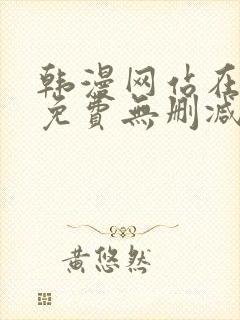 韩漫网站在
免費無删减
黄悠然